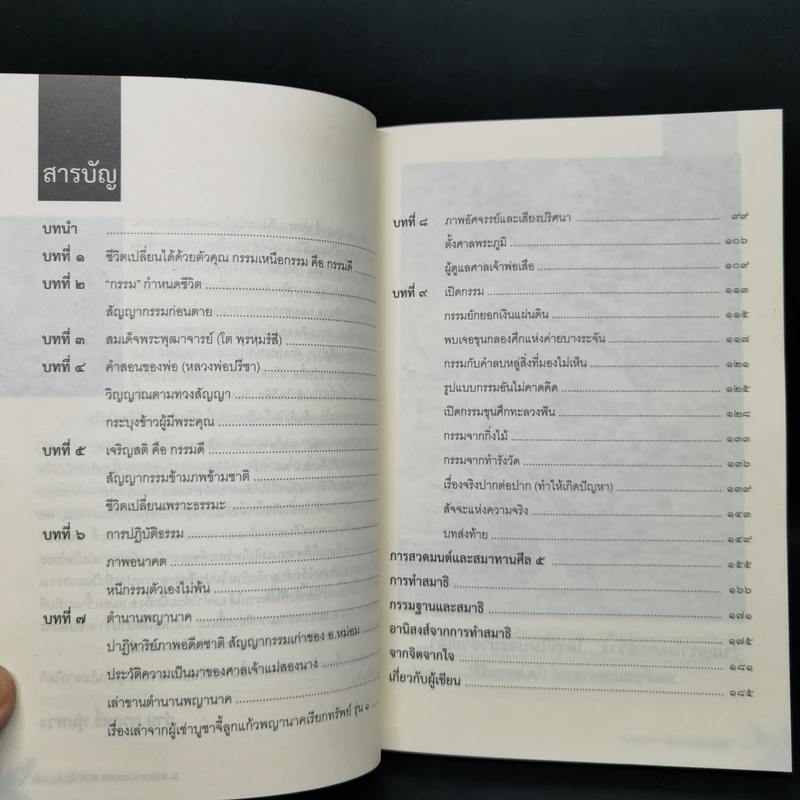 สารบัญ
บทนำ
บทที่ ๑ ชีวิตเปลี่ยนได้ด้วยตัวคุณ กรรมเหนือกรรม คือ กรรมดี
บทที่ ๒ "กรรม" กำหนดชีวิต
สัญญากรรมก่อนตาย
บทที่ ๓ สมเด็จพระพุฒาจารย์ (โต พฺรหฺมรํสี)
บทที่ ๔ คำสอนของพ่อ (หลวงพ่อปรีชา)
วิญญาณตามทวงสัญญา
กระบุงข้าวผู้มีพระคุณ
บทที่ ๕ เจริญสติ คือ กรรมดี
สัญญากรรมข้ามภพข้ามชาติ
ชีวิตเปลี่ยนเพราะธรรมะ
บทที่ ๖ การปฏิบัติธรรม
ภาพอนาคต
หนีกรรมตัวเองไม่พ้น
บทที่ ๗ ตำนานพญานาค
ปาฏิหาริย์ภาพอดีตชาติ สัญญากรรมเก่าของ อ.หม่อม
ประวัติความเป็นมาของศาลเจ้าแม่สองนาง
เล่าขานตำนานพญานาค
เรื่องเล่าจากผู้เช่าบูชาจี้ลูกแก้วพญานาคเรียกทรัพย์ รุ่น ๑
บทที่ ๘ ภาพอัศจรรย์และเสียงปริศนา ๙๙
ตั้งศาลพระภูมิ ๑๐๖
ผู้ดูแลศาลเจ้าพ่อเสือ ๑๐๙
บทที่ ๙ เปิดกรรม ๑๑๓
กรรมยักยอกเงินแผ่นดิน ๑๑๕
พบเจอขุนกลองศึกแห่งค่ายบางระจัน ๑๑๗
กรรมกับคำลบหลู่สิ่งที่มองไม่เห็น ๑๒๑
รูปแบบกรรมอันไม่คาดคิด ๑๒๕
เปิดกรรมขุนศึกทะลวงฟัน ๑๒๘
กรรมจากกิ่งไม้ ๑๓๓
กรรมจากทำรังวัด ๑๓๖
เรื่องจริงปากต่อปาก (ทำให้เกิดปัญหา) ๑๓๙
สัจจะแห่งความจริง ๑๔๓
บทส่งท้าย ๑๔๙
การสวดมนต์และสมาทานศีล ๕ ๑๕๕
การทำสมาธิ ๑๖๖
กรรมฐานและสมาธิ ๑๗๑
อานิสงส์จากการทำสมาธิ ๑๗๕
จากจิตจากใจ ๑๘๑
เกี่ยวกับผู้เขียน ๑๘๕